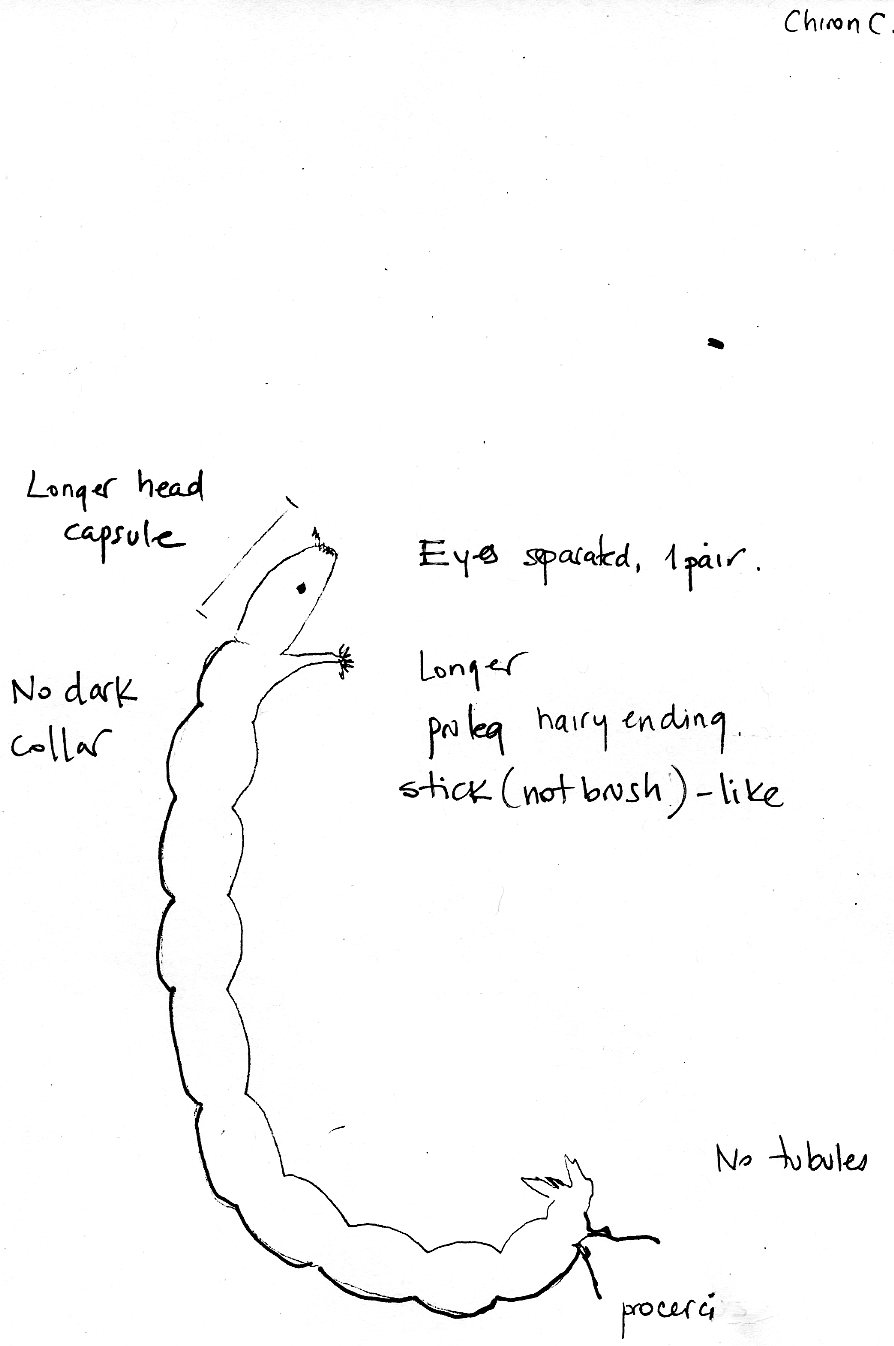 Chiron C.
Longer head
capsule
Eyes separated, 1 pair.
Longer
proleg hairy ending.
stick (not brush) - like
No dark
collar
No tubules
procerci